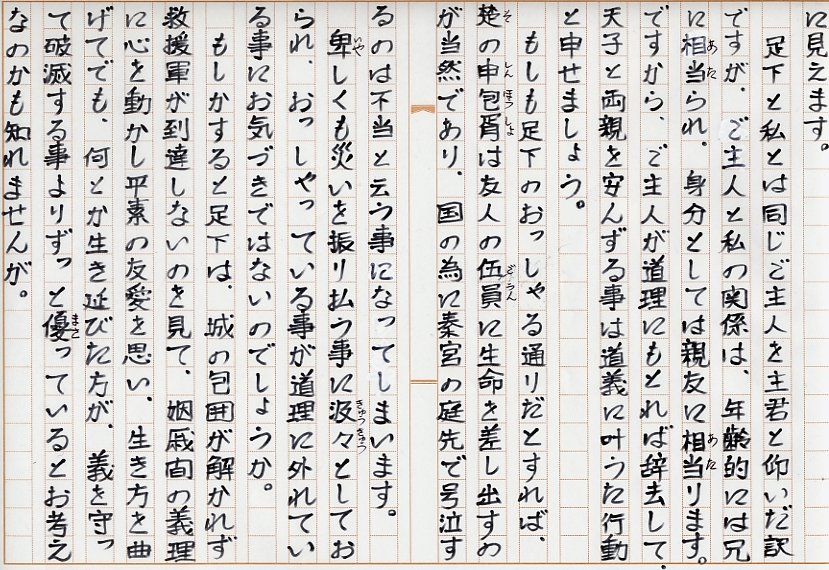 に見えます。
足下と私とは同じご主人を主君と仰いだ訳
ですが、ご主人と私の関係は、年齢的には兄
に相当られ、身分としては親友に相当ります。
ですから、ご主人が道理にもとれば辞去して、
天子と両親を安んずる事は道義に叶うた行動
と申せましょう。
もしも足下のおっしゃる通りだとすれば、
楚の申包胥は友人の伍員に生命を差し出すの
が当然であり、国の為に秦宮の庭先で号泣す
るのは不当と云う事になってしまいます。
卑しくも災いを振り払う事に汲々としてお
られ、おっしゃっている事が道理に外れてい
る事にお気づきではないのでしょうか。
もしかすると足下は、城の包囲が解かれず
救援軍が到達しないのを見て、姻戚間の義理
に心を動かし平素の友愛を思い、生き方を曲
げてでも、何とか生き延びた方が、義を守っ
て破滅する事よりずっと優っているとお考え
なのかも知れませんが。